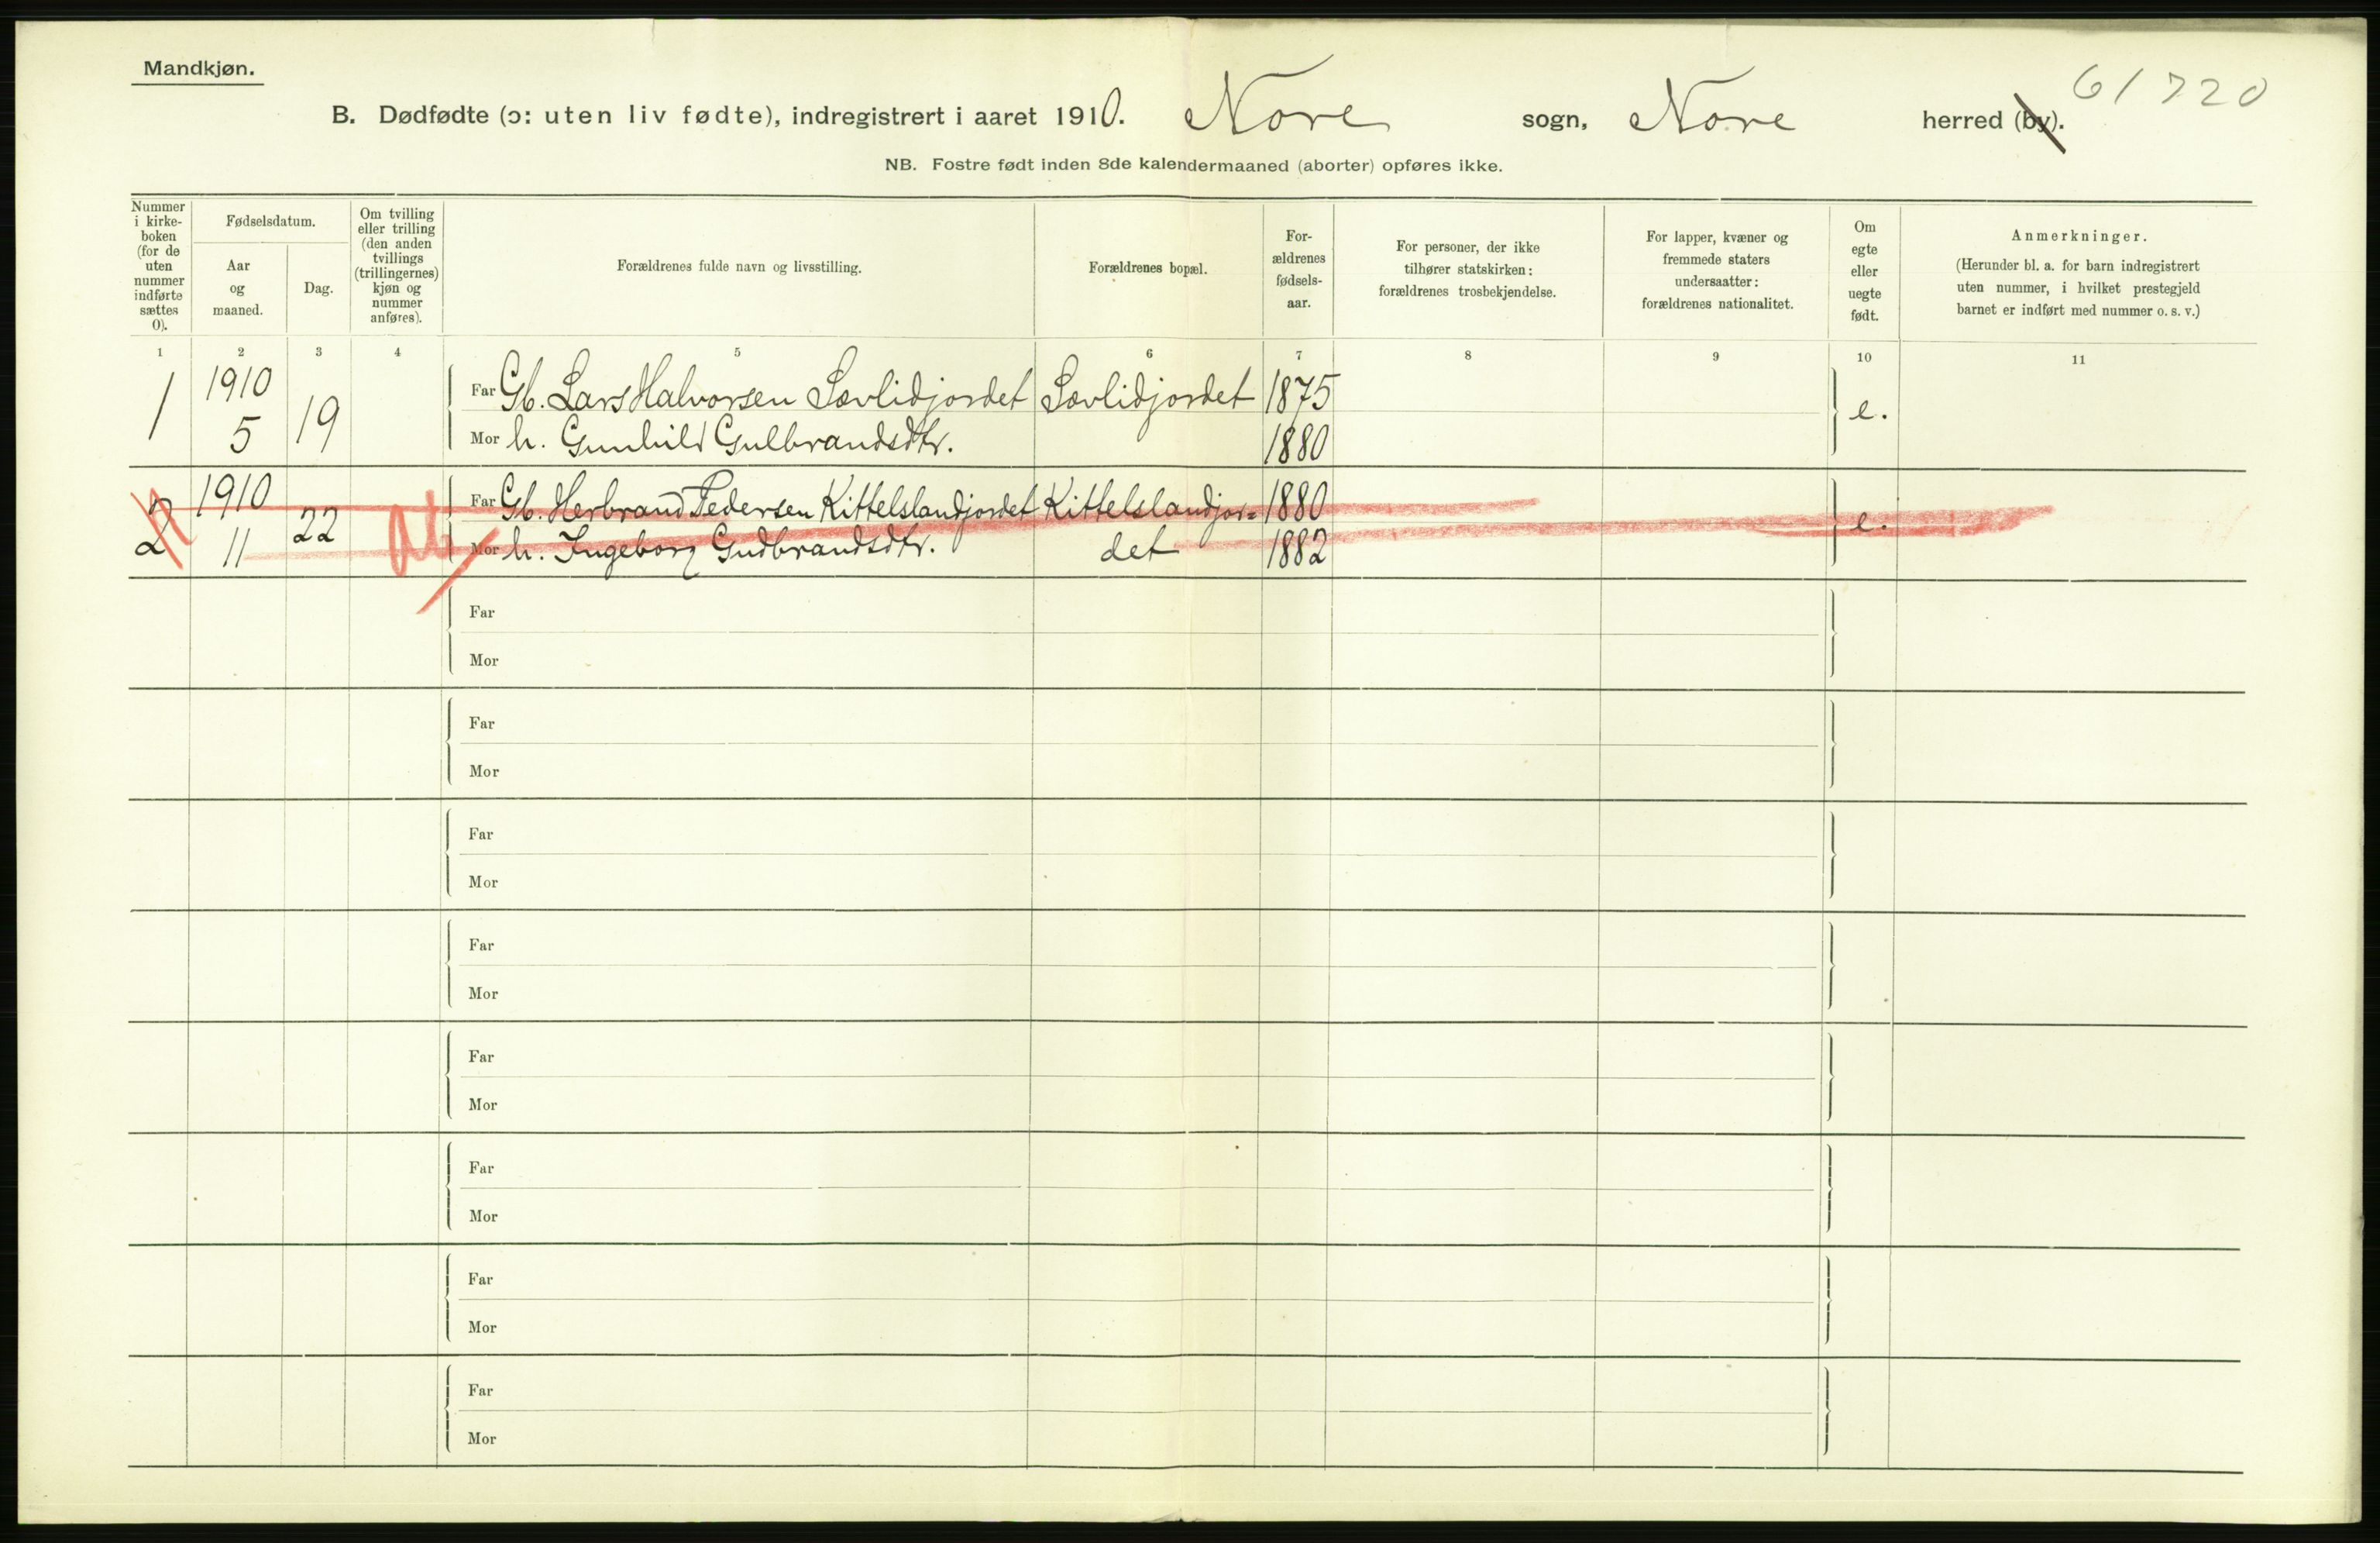 Mandkjøn.
61720
B. Dødfødte (ɔ: uten liv fødte), indregistrert i aaret 1910. Nore sogn, Nore herred (by).
NB. Fostre født inden 8de kalendermaaned (aborter) opføres ikke.
Nummer i kirke-boken (for de uten nummer indførte sættes 0).
Fødselsdatum.
Aar og maaned.
Dag.
Om tvilling eller trilling (den anden tvillings (trillingernes) kjøn og nummer anføres).
Forældrenes fulde navn og livsstilling.
Forældrenes bopæl.
For-ældrenes fødsels-aar.
For personer, der ikke tilhører statskirken: forældrenes trosbekjendelse.
For lapper, kvæner og fremmede staters undersaatter: forældrenes nationalitet.
Om egte eller uegte født.
Anmerkninger.
(Herunder bl. a. for barn indregistrert uten nummer, i hvilket prestegjeld barnet er indført med nummer o. s. v.)
1 2 3 4 5 6 7 8 9 10 11
1 1910 5 19 Far Gb. Lars Halvorsen Sævlidjordet Sævlidjordet 1875 e.
Mor h. Gunhild Gulbrandsdtr. 1880
2 1910 11 22 Far Gb. Herbrand Pedersen Kittelslandjordet Kittelslandjor= 1880 e.
Mor h. Ingeborg Gudbrandsdtr. det 1882
Far
Mor
Far
Mor
Far
Mor
Far
Mor
Far
Mor
Far
Mor
Far
Mor
Far
Mor